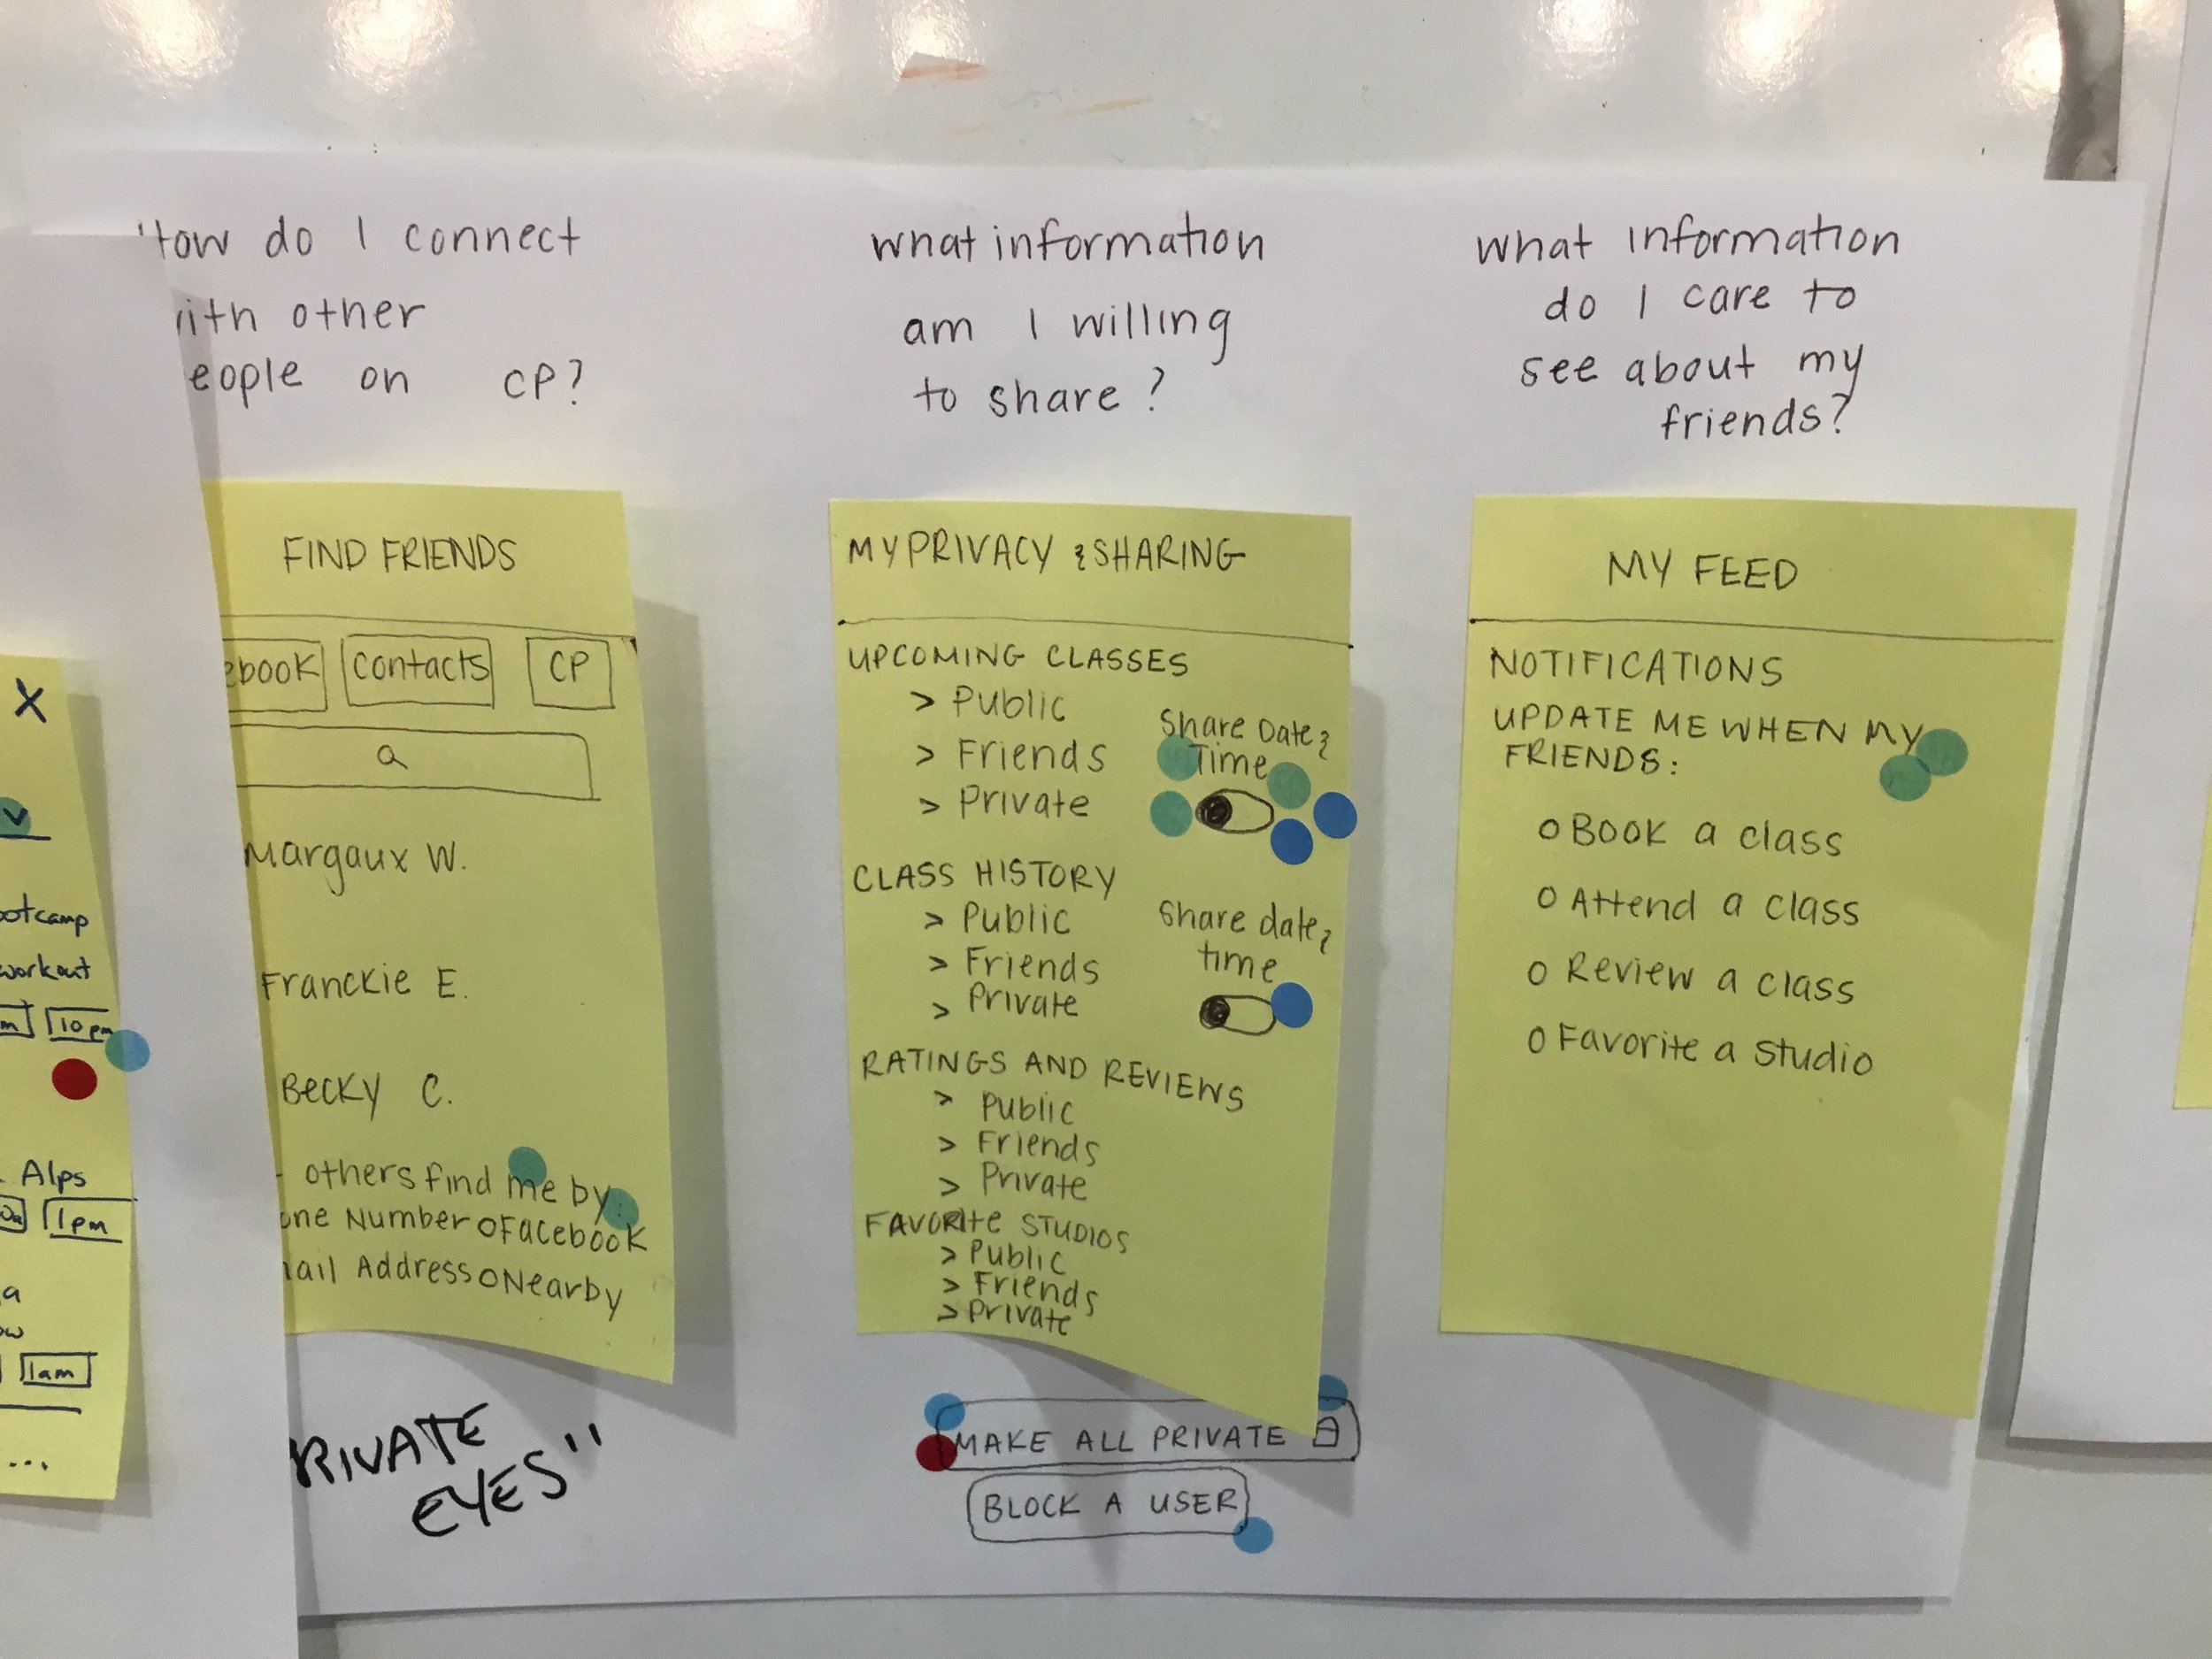 How do I connect
with other
people on CP?
FIND FRIENDS
ebook
Contacts
CP
Margaux W.
Franckie E.
Becky C.
others find me by:
one Number o Facebook
mail Address o Nearby
PRIVATE
EYES"
what information
am I willing
to share?
MY PRIVACY & SHARING
UPCOMING CLASSES
> Public
> Friends
> Private
Share Date &
Time
CLASS HISTORY
> Public
> Friends
> Private
Share date &
time
RATINGS AND REVIEWS
> Public
> Friends
> Private
FAVORITE STUDIOS
> Public
> Friends
> Private
MAKE ALL PRIVATE
BLOCK A USER
what information
do I care to
see about my
friends?
MY FEED
NOTIFICATIONS
UPDATE ME WHEN MY
FRIENDS:
o Book a class
o Attend a class
o Review a class
o Favorite a studio
X
ootcamp
workout
m 10 pm
Alps
1pm
a
ow
1am
...